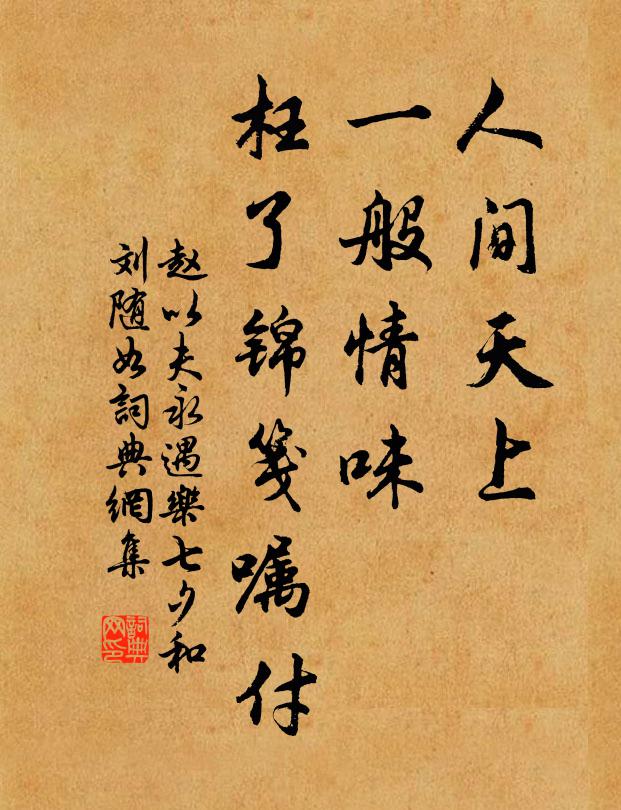 人间天上
一般情味
枉了锦笺嘱付
赵以夫永遇樂七夕和
刘随如詞典網集
詞典
网印